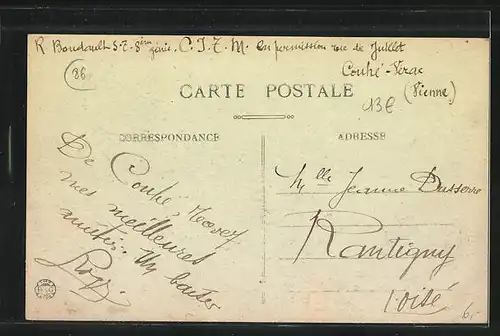 R. Boudault S.T. 8ème génie. C.I.T.M. En permission rue de Juillet
Couhé-Verac
(Vienne)
86
CARTE POSTALE
13€
CORRESPONDANCE
ADRESSE
De Couhé, Recevez
mes meilleures
amitiés. Un baiser
Melle Jeanne Dasserre
Rantigny
Oise
6,-